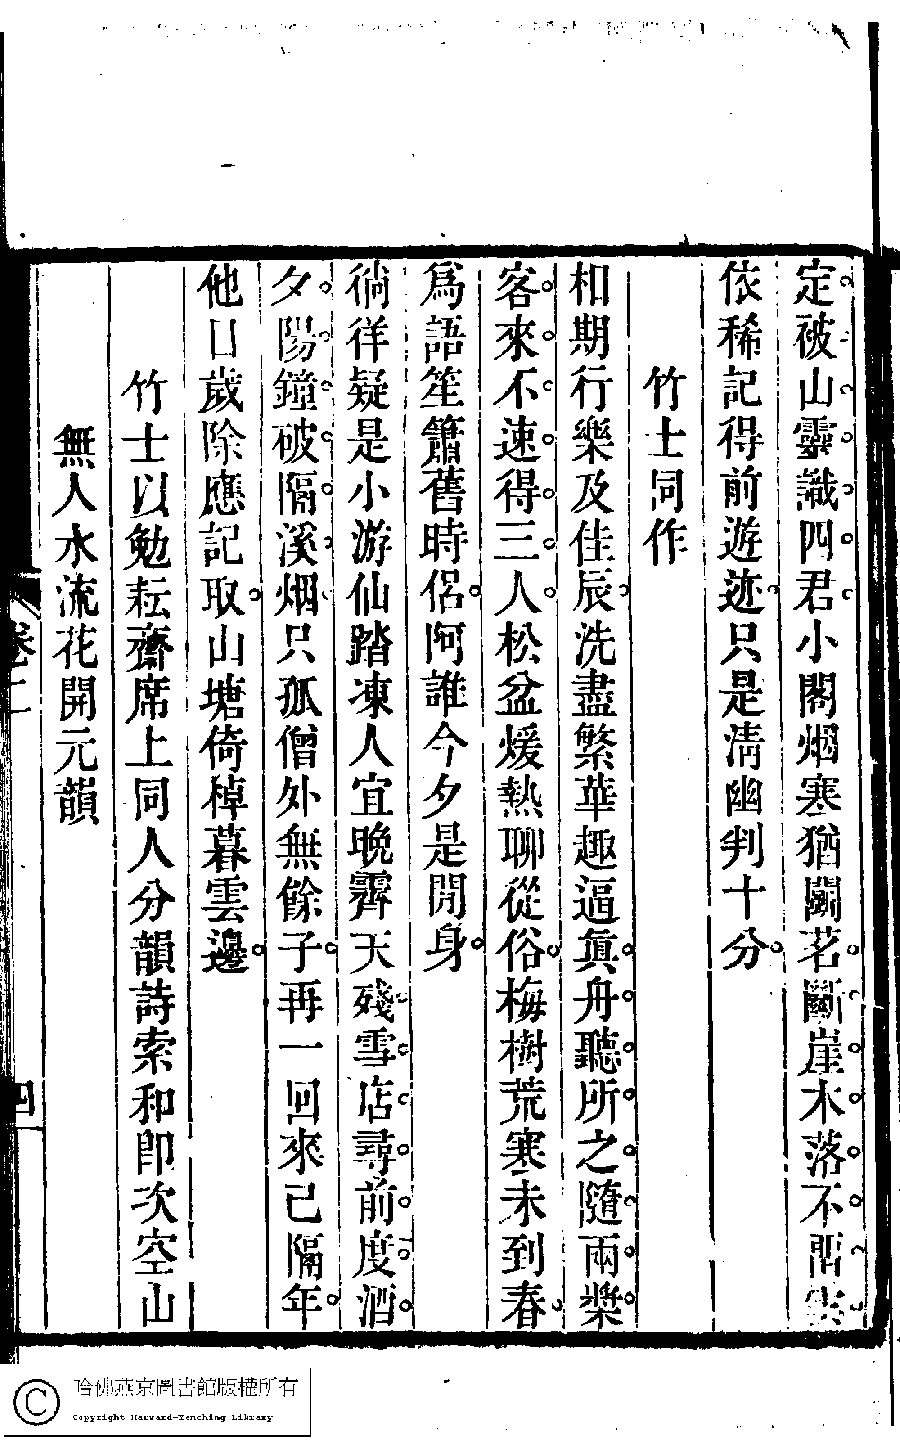 定被山靈識四君小閣烟寒猶鬬茗斷崖木落不留雲
依稀記得前遊迹只是清幽判十分
竹士同作
相期行樂及佳辰洗盡繁華趣逼眞舟聽所之隨兩槳
客來不速得三人松盆煖熱聊從俗梅樹荒寒未到春
爲語笙簫舊時侶阿誰今夕是閒身
徜徉疑是小游仙踏凍人宜晚霽天殘雪店尋前度酒
夕陽鐘破隔溪烟只孤僧外無餘子再一回來已隔年
他日歲除應記取山塘倚棹暮雲邊
竹士以勉耘齋席上同人分韻詩索和卽次空山
無人水流花開元韻
卷二
四
哈佛燕京圖書館版權所有
Copyright Harvard-Yenching Library